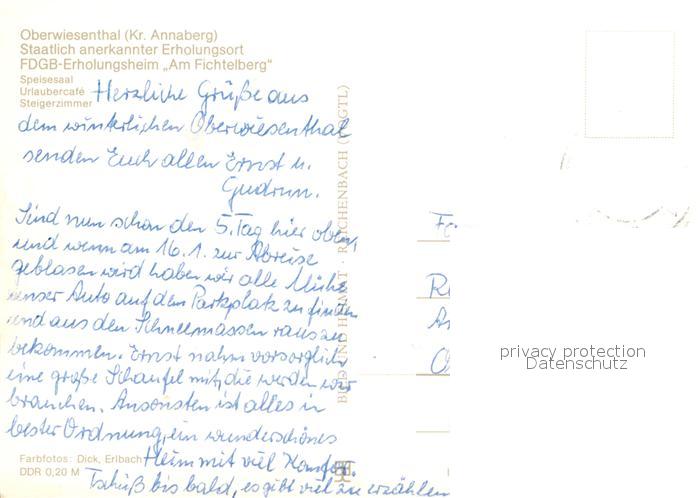 Oberwiesenthal (Kr. Annaberg)
Staatlich anerkannter Erholungsort
FDGB-Erholungsheim „Am Fichtelberg“
Speisesaal
Urlaubercafé
Steigerzimmer
Herzliche Grüße aus
dem winterlichen Oberwiesenthal
senden Euch allen Ernst u.
Gudrun.
Sind nun schon den 5. Tag hier oben,
und wenn am 16.1. zur Abreise
geblasen wird haben wir alle Mühe
unser Auto auf dem Parkplatz zu finden
und aus den Schneemassen rauszu
bekommen. Ernst nahm vorsorglich
eine große Schaufel mit, die werden wir
brauchen. Ansonsten ist alles in
bester Ordnung, ein wunderschönes
Heim mit viel Komfort.
Tschüß bis bald, es gibt viel zu erzählen
Farbfotos: Dick, Erlbach
DDR 0,20 M
BILD UND HEIMAT · REICHENBACH (VOGTL)
privacy protection
Datenschutz